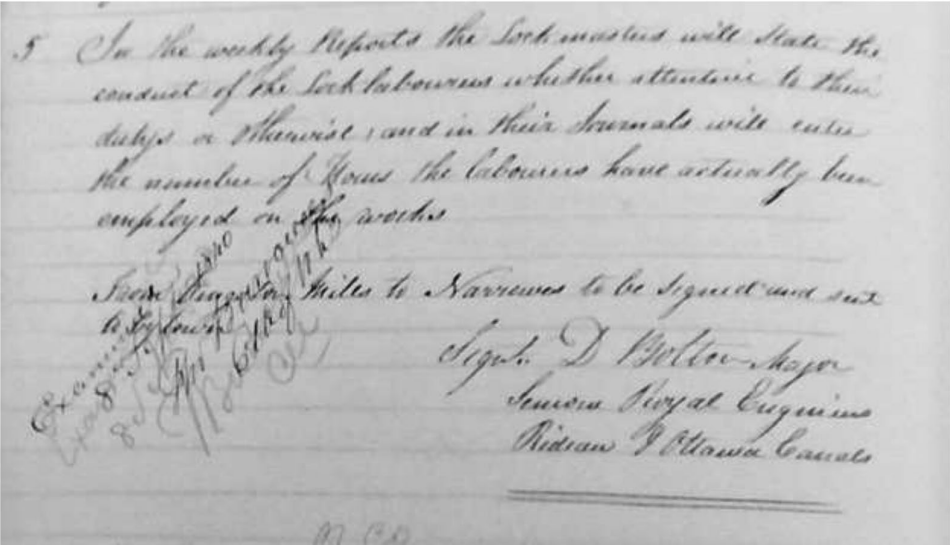 5 In the weekly Reports the Lockmasters will State the
conduct of the Lock labourers whether attentive to their
dutys or Otherwise, and in their Journals will enter
the number of Hours the labourers have actually been
employed on the works
From Kingston Mills to Narrows to be Signed and sent
to Bytown
Signd. D Bolton Major
Royal Engineers
Rideau & Ottawa Canals